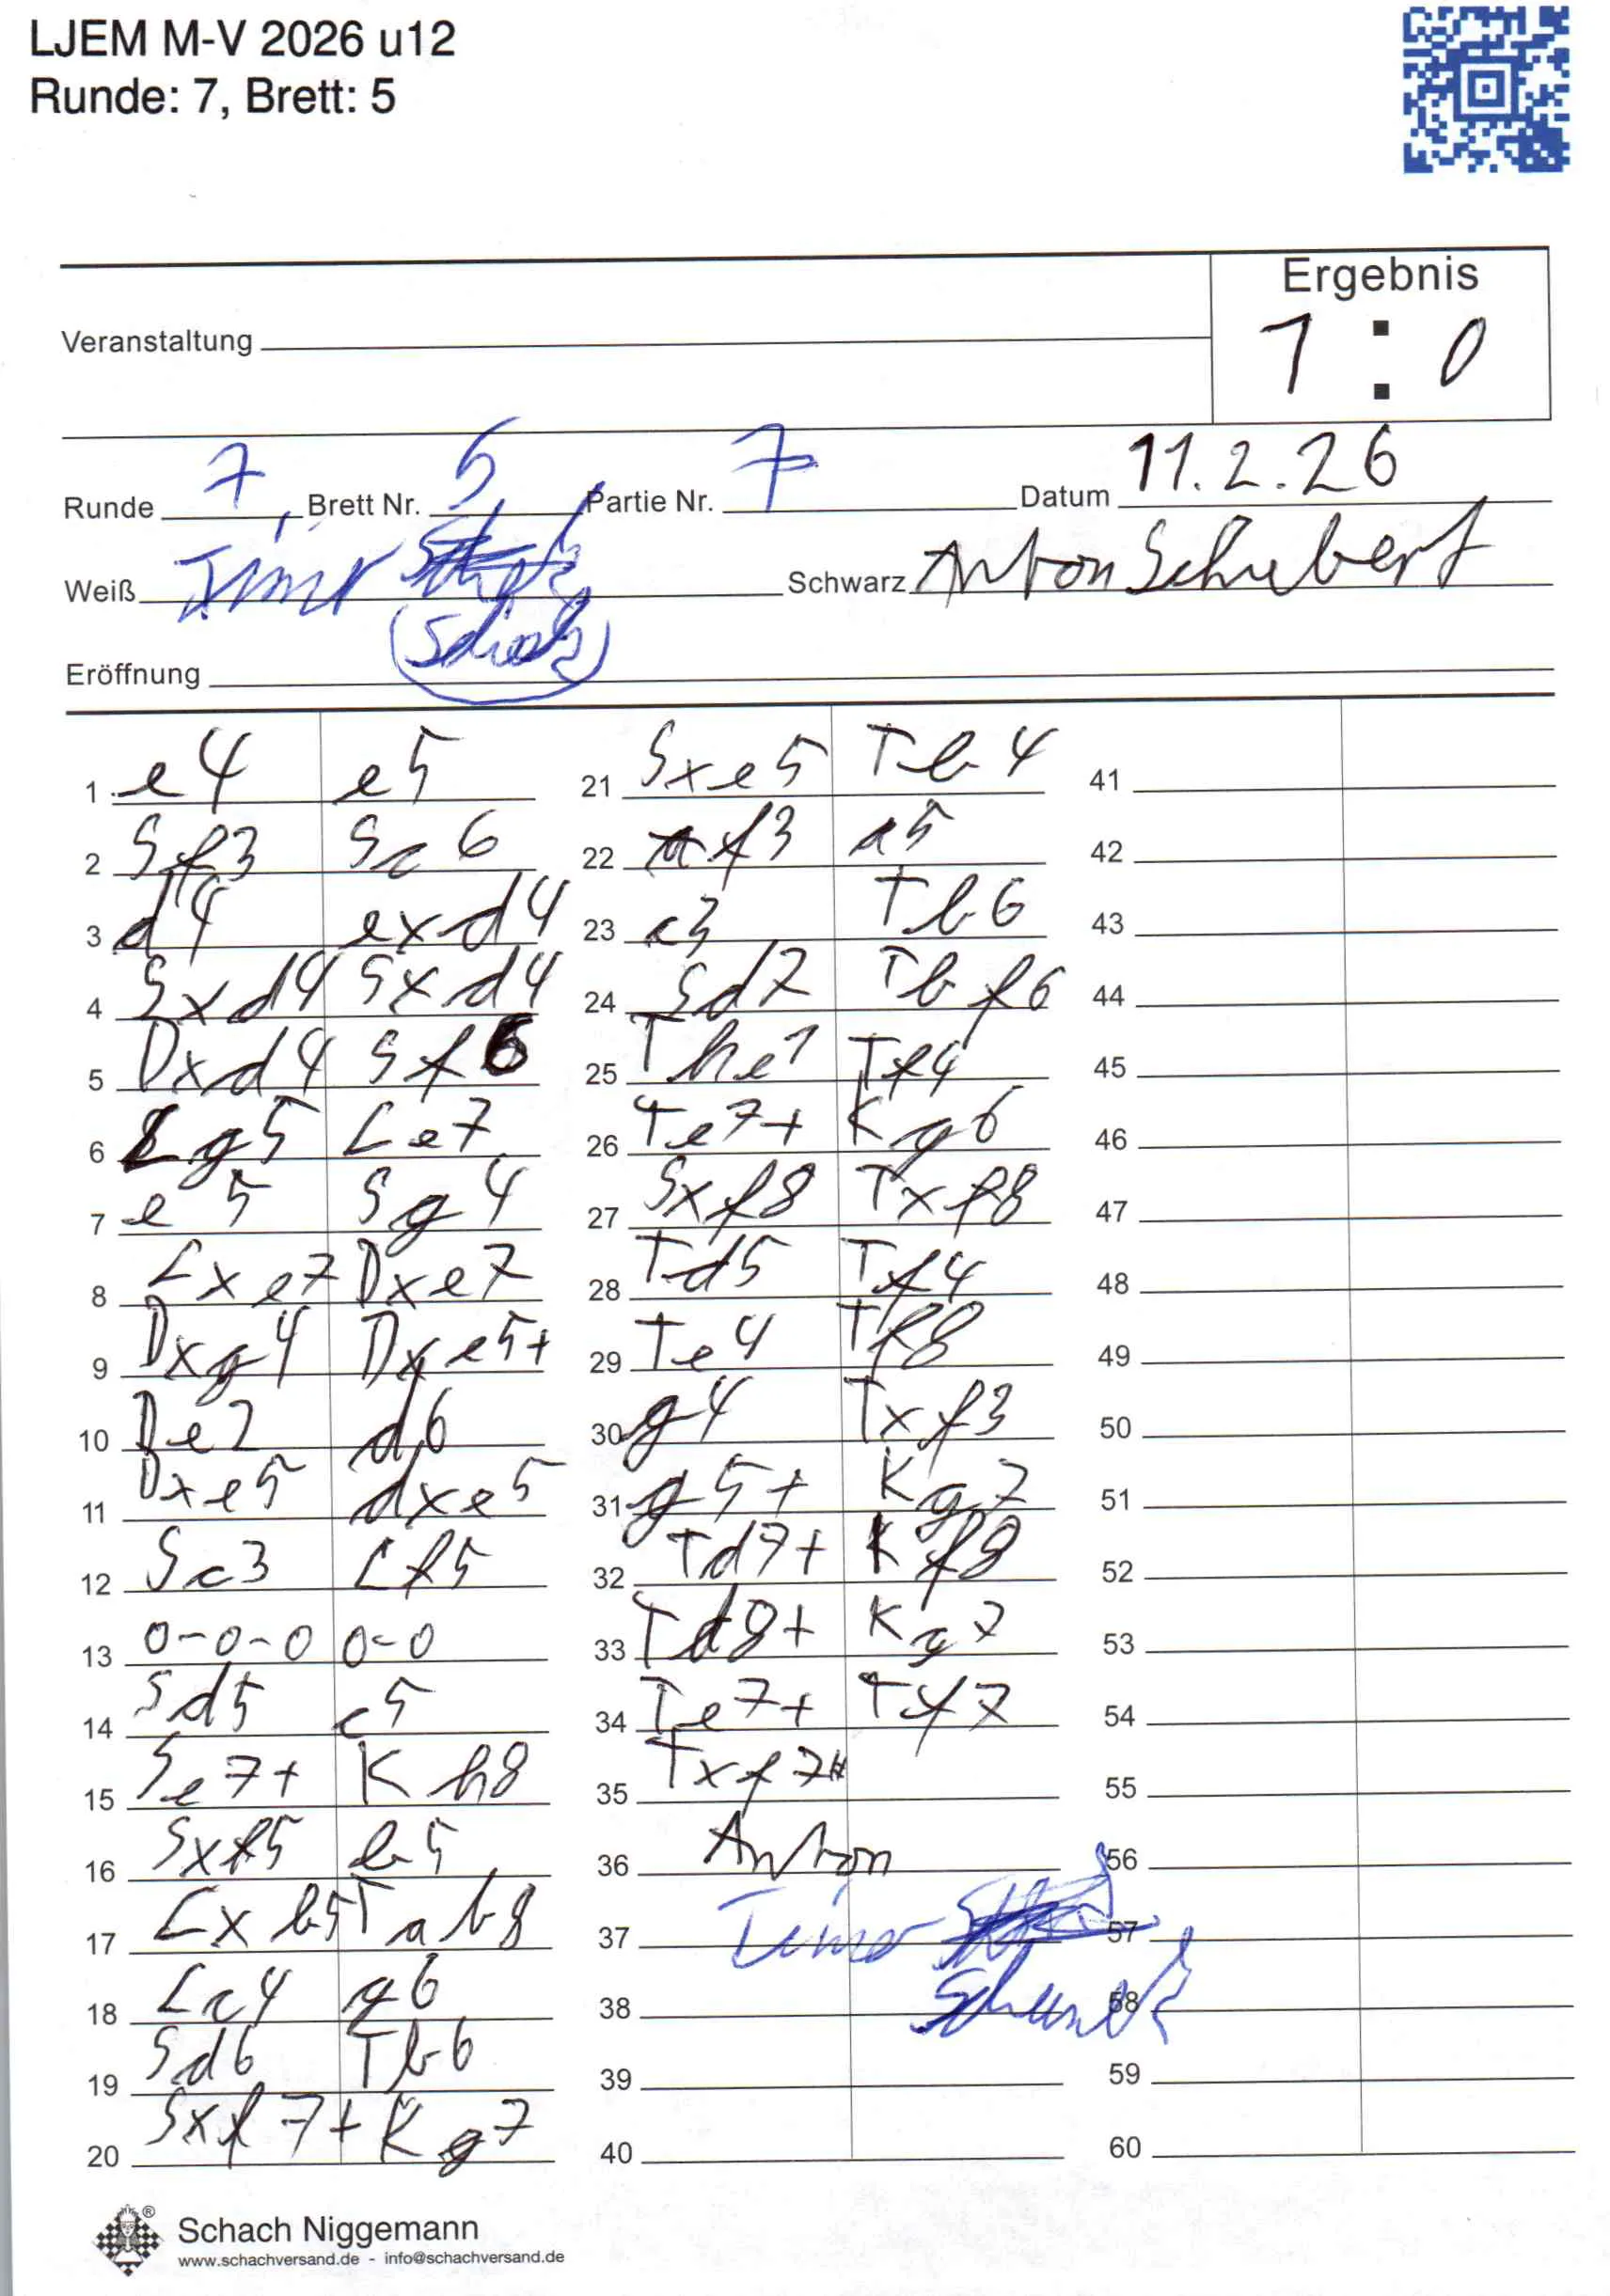 LJEM M-V 2026 u12
Runde: 7, Brett: 5
Ergebnis
1 : 0
Veranstaltung
Runde 7, Brett Nr. 5 Partie Nr. 7 Datum 11.2.26
Weiß Timur Schwarz Anton Schubert
Eröffnung
1 e4 e5
2 Sf3 Sc6
3 d4 exd4
4 Sxd4 Sxd4
5 Dxd4 Sf6
6 Lg5 Le7
7 e5 Sg4
8 Lxe7 Dxe7
9 Dxg4 Dxe5+
10 De2 d6
11 Dxe5 dxe5
12 Sc3 Lf5
13 0-0-0 0-0
14 Sd5 c5
15 Se7+ Kh8
16 Sxf5 b5
17 Lxb5 Tab8
18 Lc4 g6
19 Sd6 Tb6
20 Sxf7+ Kg7
21 Sxe5 Tb4
22 f3 a5
23 c3 Tb6
24 Sd7 Tbf6
25 The1 Tf4
26 Te7+ Kg6
27 Sxf8 Txf8
28 Td5 Tf4
29 Te4 Tf8
30 g4 Txf3
31 g5+ Kg7
32 Td7+ Kf8
33 Td8+ Kg7
34 Te7+ Tf7
35 Txf7#
36 Anton
37
38
39
40
41
42
43
44
45
46
47
48
49
50
51
52
53
54
55
56
57
58
59
60
Schach Niggemann
www.schachversand.de - info@schachversand.de